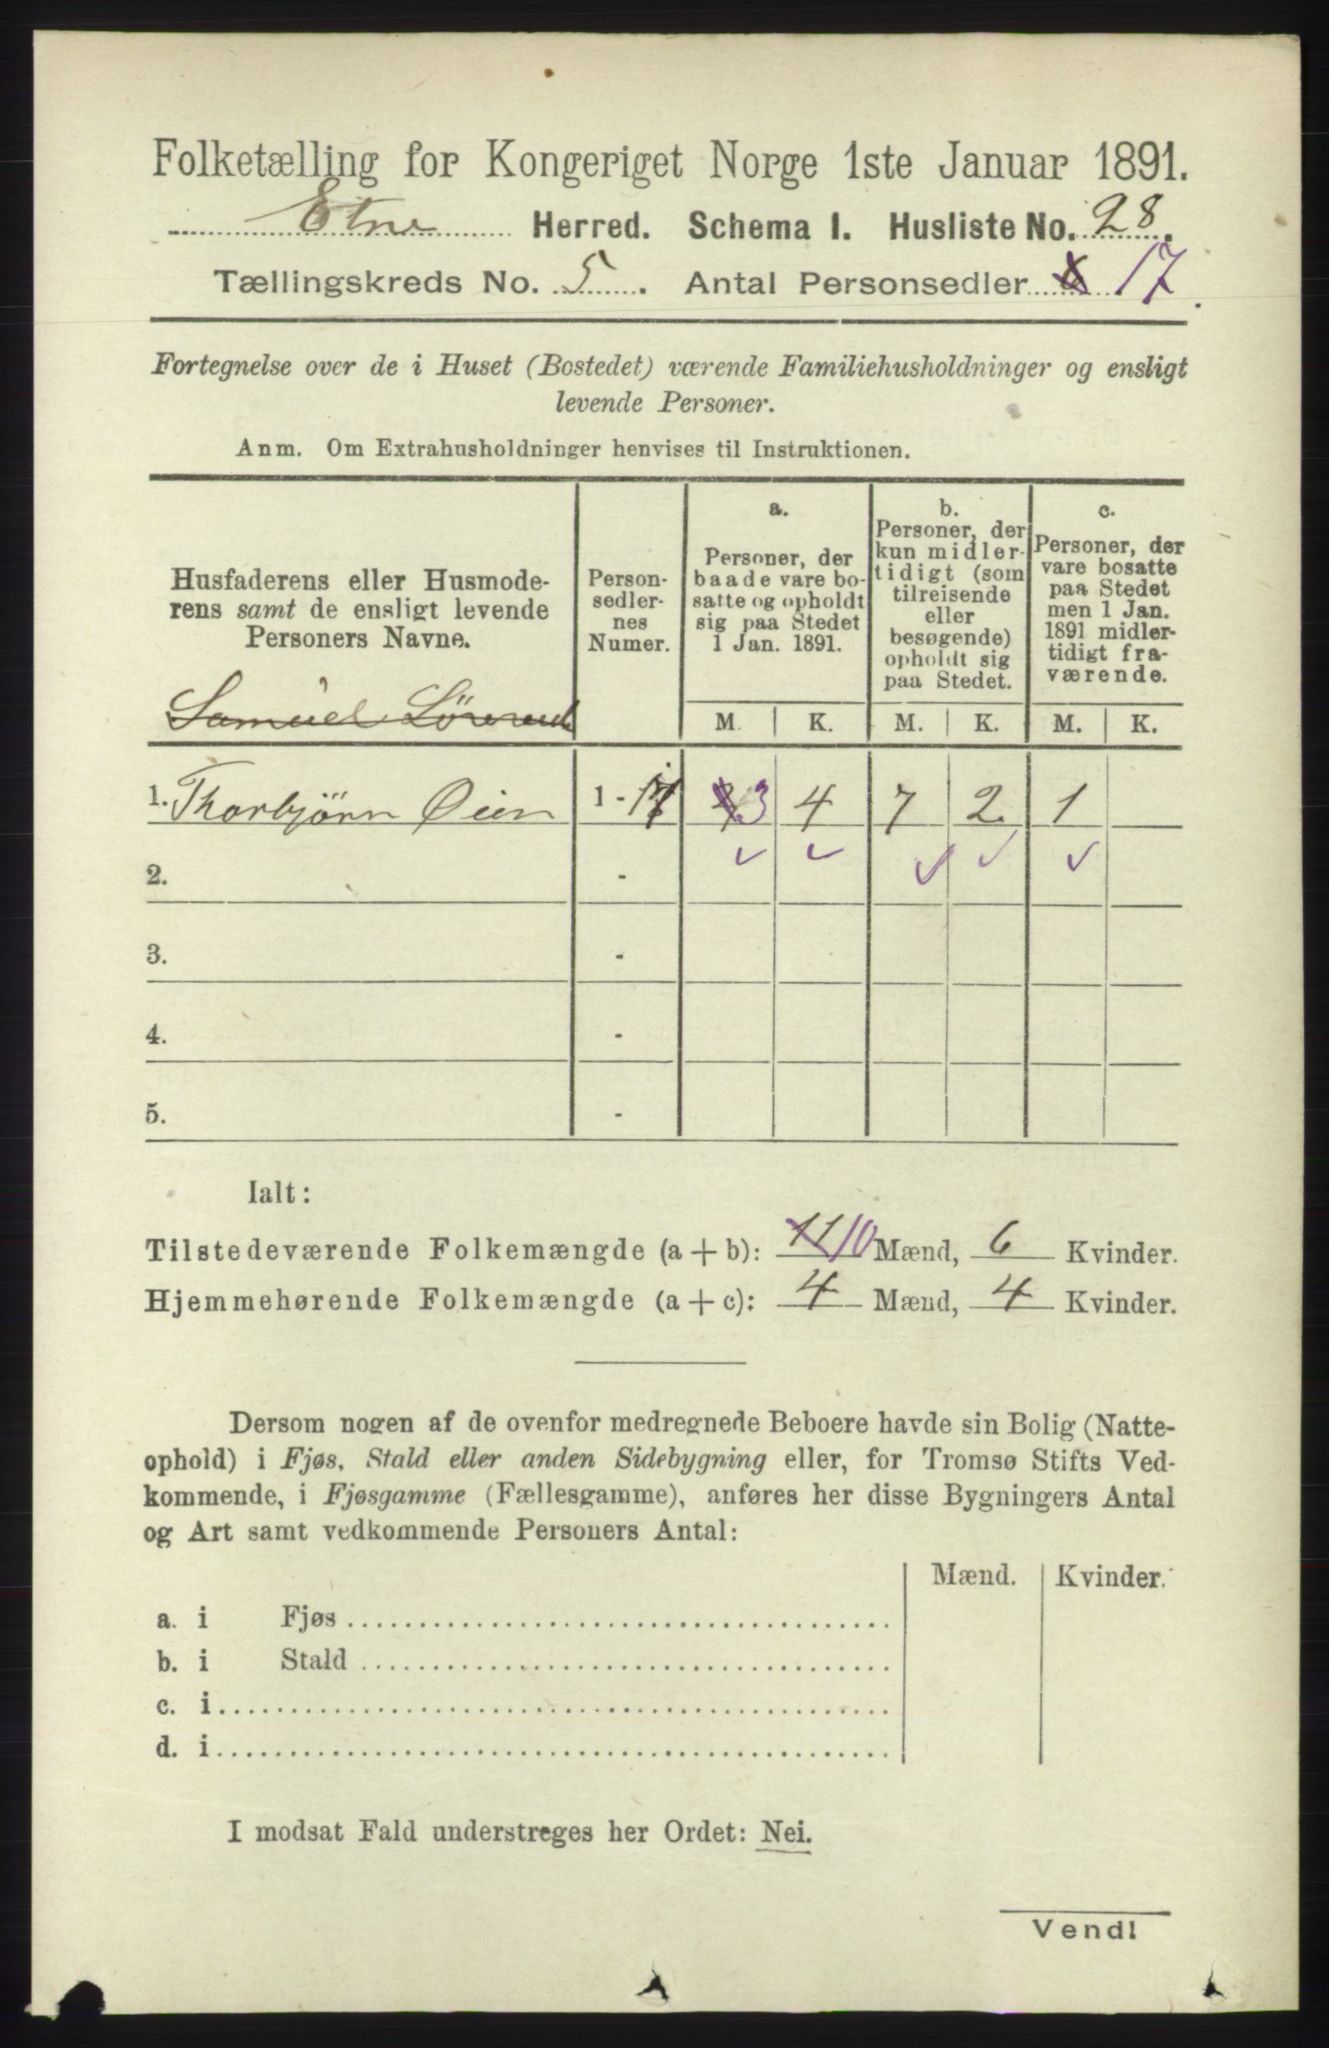 Folketælling for Kongeriget Norge 1ste Januar 1891.
Etne Herred. Schema I. Husliste No. 28.
Tællingskreds No. 5. Antal Personsedler 17.
Fortegnelse over de i Huset (Bostedet) værende Familiehusholdninger og ensligt
levende Personer.
Anm. Om Extrahusholdninger henvises til Instruktionen.
Husfaderens eller Husmode-
rens samt de ensligt levende
Personers Navne.
Samuel
Person-
sedler-
nes
Numer.
a.
Personer, der
baade vare bo-
satte og opholdt
sig paa Stedet
1 Jan. 1891.
b.
Personer, der
kun midler-
tidigt (som
tilreisende
eller
besøgende)
opholdt sig
paa Stedet.
c.
Personer, der
vare bosatte
paa Stedet
men 1 Jan.
1891 midler-
tidigt fra-
værende.
M. K. M. K. M. K.
1. Thorbjörn Øien 1 - 17 3 4 7 2 1
2. -
3. -
4. -
5. -
Ialt:
Tilstedeværende Folkemængde (a + b): 11 10 Mænd, 6 Kvinder.
Hjemmehørende Folkemængde (a + c): 4 Mænd, 4 Kvinder.
Dersom nogen af de ovenfor medregnede Beboere havde sin Bolig (Natte-
ophold) i Fjøs, Stald eller anden Sidebygning eller, for Tromsø Stifts Ved-
kommende, i Fjøsgamme (Fællesgamme), anføres her disse Bygningers Antal
og Art samt vedkommende Personers Antal:
Mænd. Kvinder.
a. i Fjøs
b. i Stald
c. i
d. i
I modsat Fald understreges her Ordet: Nei.
Vend!